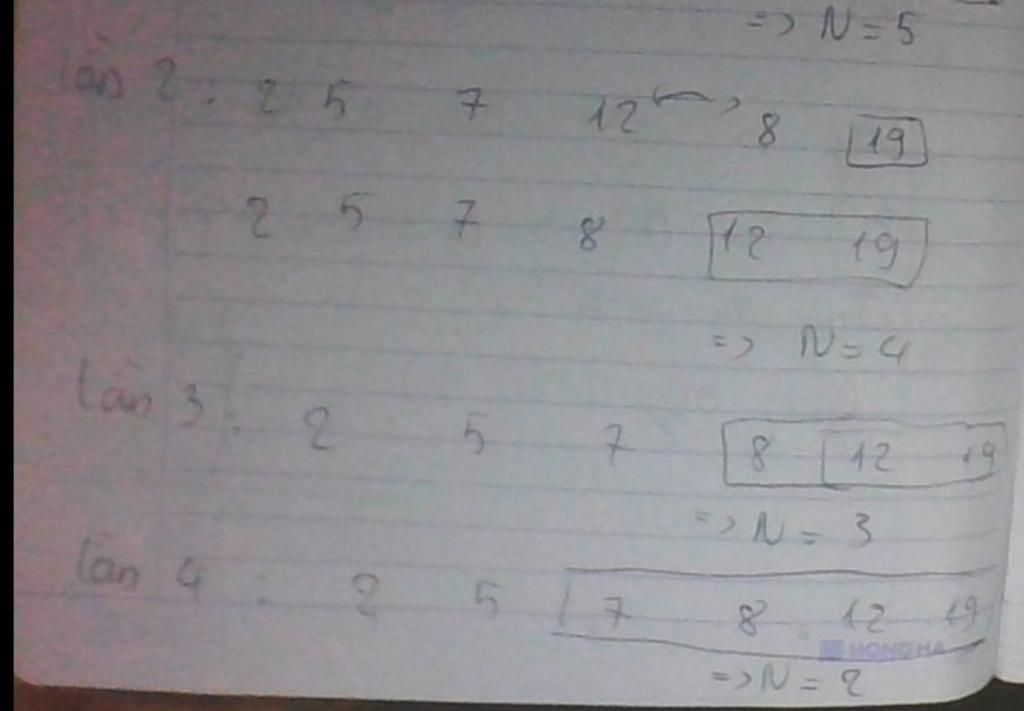 => N = 5
lần 2 : 2 5 7 12 8 19
2 5 7 8 12 19
=> N = 4
lần 3 : 2 5 7 8 12 19
=> N = 3
lần 4 : 2 5 7 8 12 19
HONG HA
=> N = 2